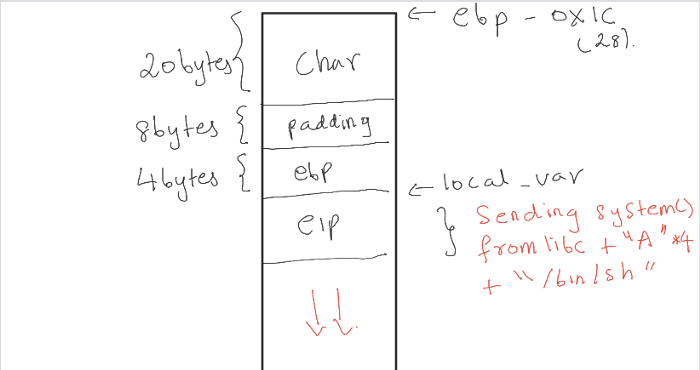 ← ebp - 0x1C
(28).
20bytes
Char
8bytes
padding
4bytes
ebp
← local_var
eip
Sending system()
from libc + "A" *4
+ "/bin/sh"